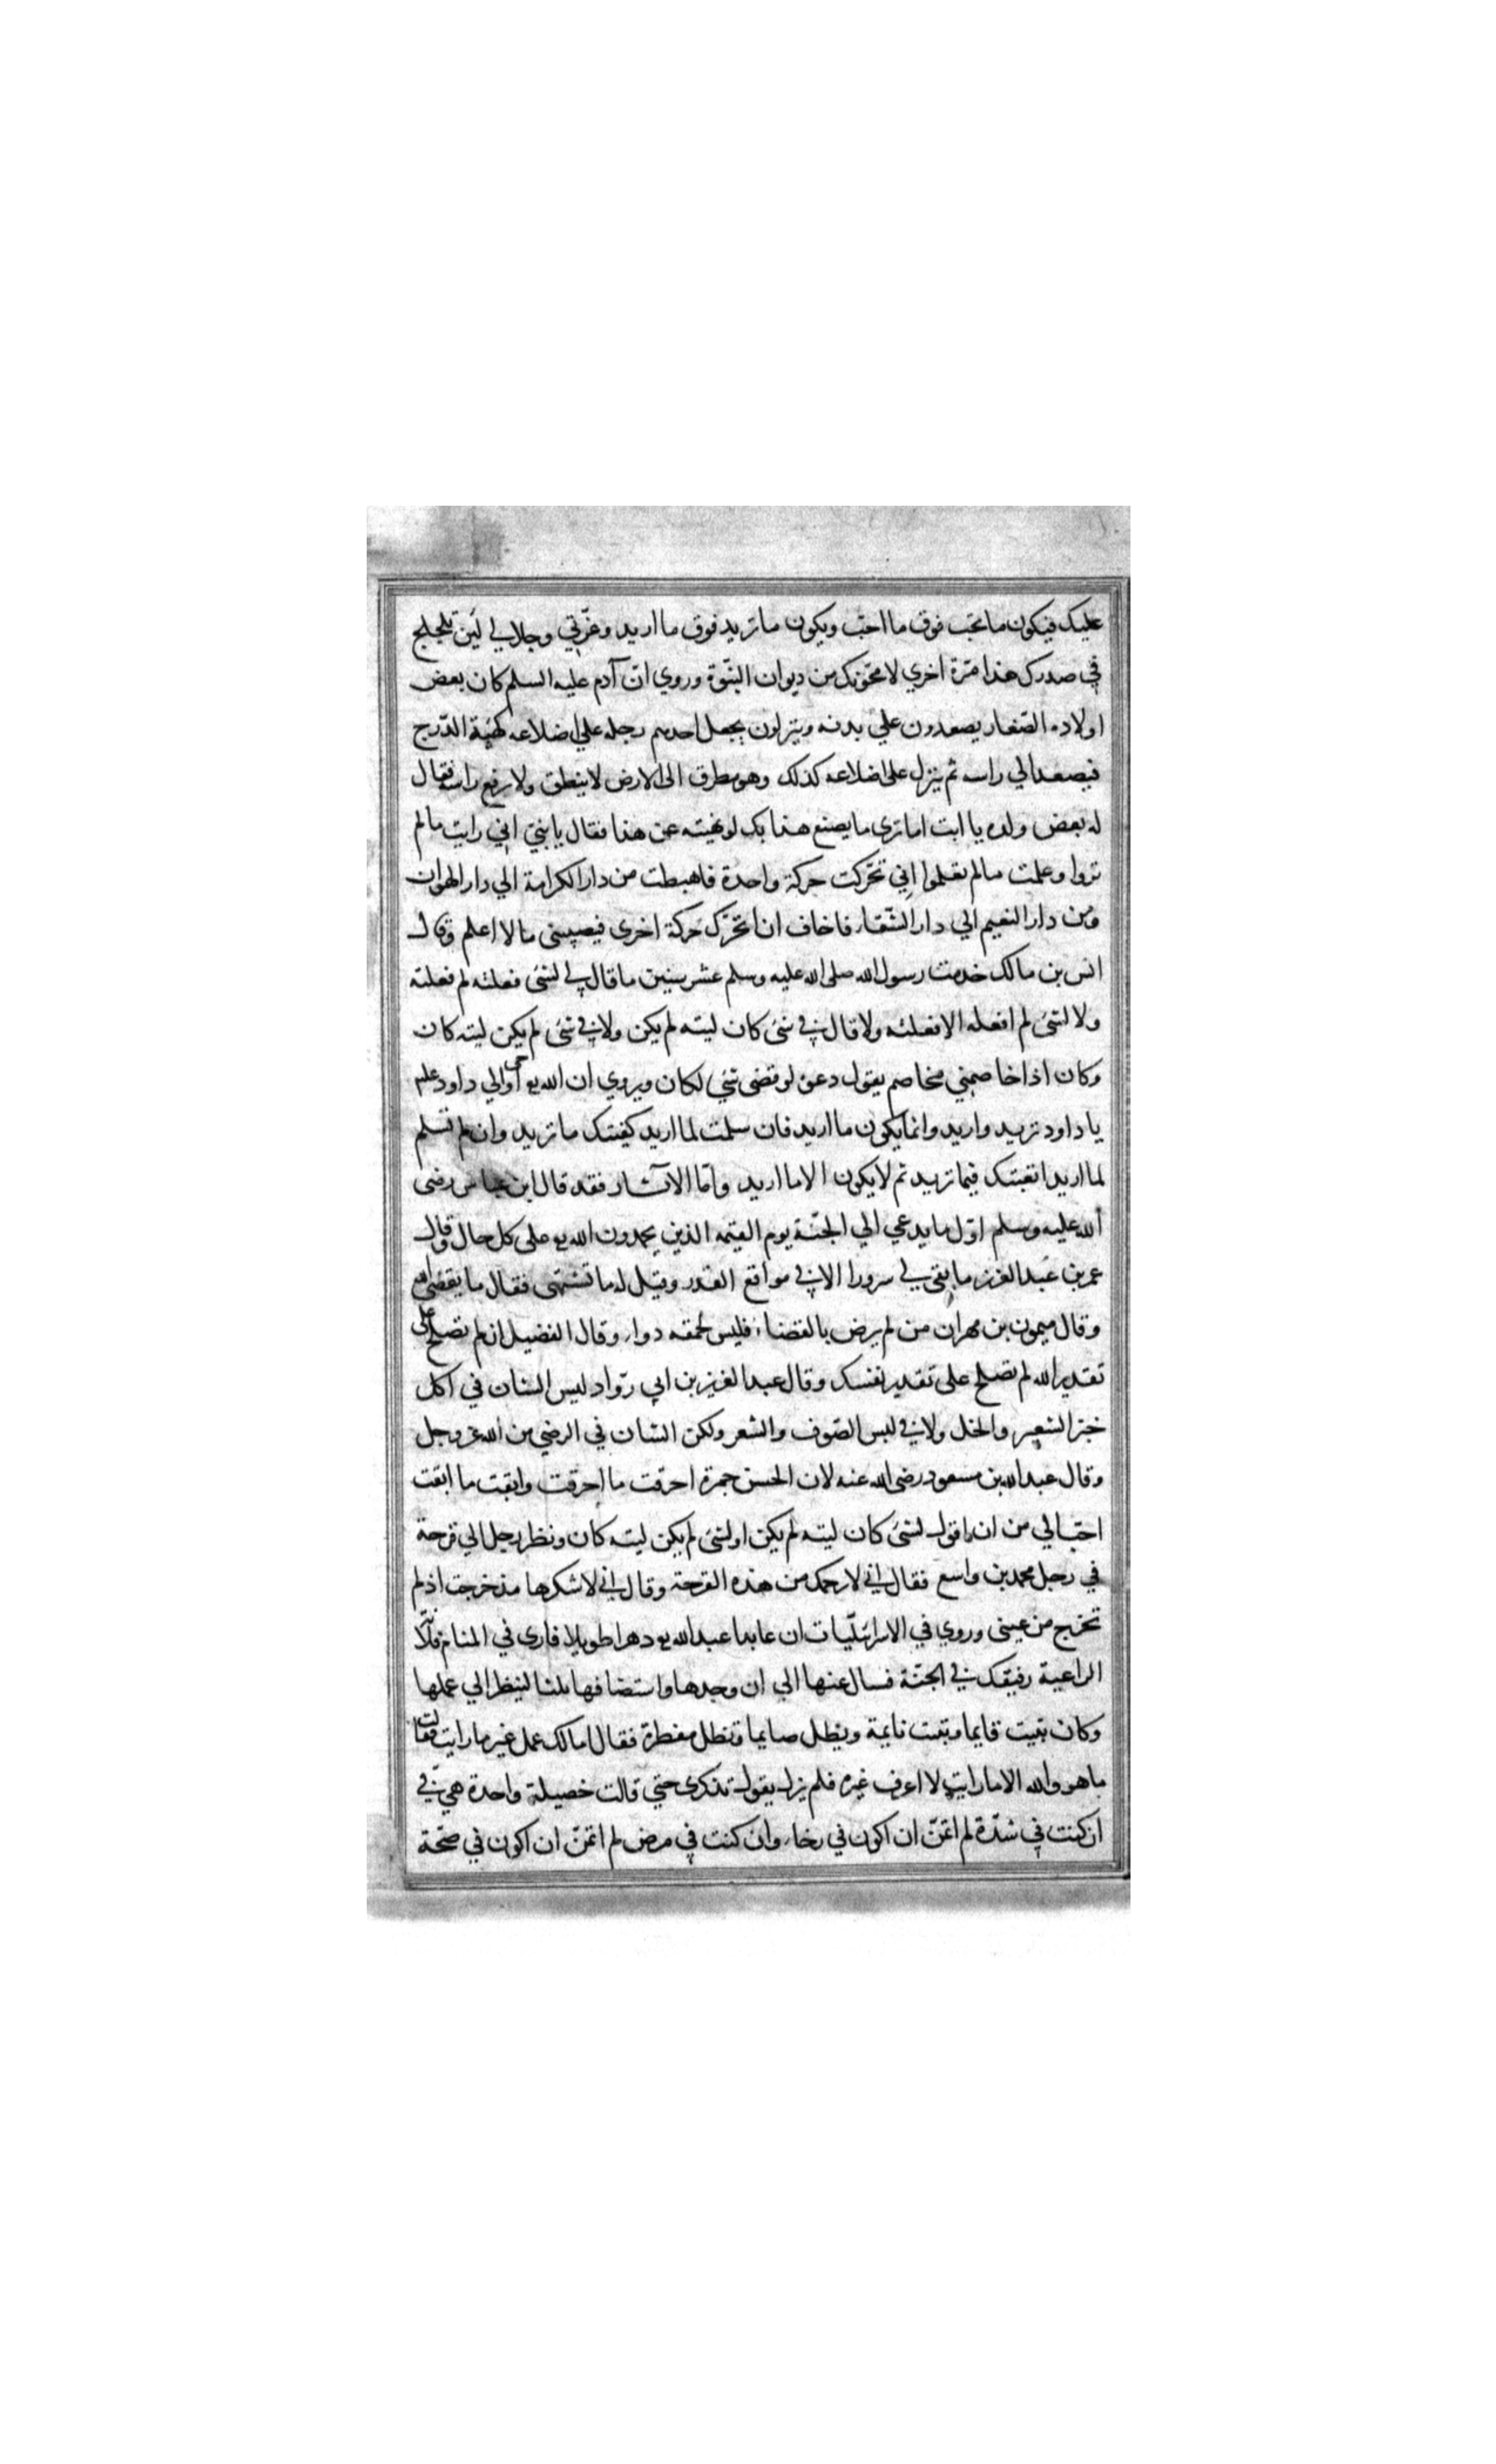 عليك فيكون ما تحب فوق ما احب ويكون ما تريد فوق ما اريد وعزتي وجلالي لين تلجلج
في صدرك هذا مرة اخري لامحونك من ديوان النبوة وروي ان آدم عليه السلم كان بعض
اولاده الصغار يصعدون علي بدنه وينزلون يجعل احدهم رجله علي اضلاعه كهيئة الدرج
فيصعد الي راسه ثم ينزل على اضلاعه كذلك وهو مطرق الى الارض لا ينطق ولا يرفع راسه فقال
له بعض ولده يا ابت اما ترى ما يصنع هذا بك لو نهيته عن هذا فقال يا بني اني رايت ما لم
تروا وعلمت ما لم تعلموا اني تحركت حركة واحدة فاهبطت من دار الكرامة الي دار الهوان
ومن دار النعيم الي دار الشقاء فاخاف ان اتحرك حركة اخرى فيصيبنى ما لا اعلم وقال
انس بن مالك خدمت رسول الله صلى الله عليه وسلم عشر سنين ما قال لي لشئ فعلته لم فعلته
ولا لشئ لم افعله الا فعلته ولا قال في شئ كان ليته لم يكن ولا في شئ لم يكن ليته كان
وكان اذا خاصمني مخاصم يقول دعوه لو قضى شئ لكان ويروي ان الله تع اوحى الي داود علم
يا داود تريد واريد وانما يكون ما اريد فان سلمت لما اريد كفيتك ما تريد وان لم تسلم
لما اريد اتعبتك فيما تريد ثم لا يكون الا ما اريد واما الآثار فقد قال ابن عباس رضى
الله عليه وسلم اول ما يدعي الي الجنة يوم القيمه الذين يحمدون الله تع على كل حال وقال
عمر بن عبد العزيز ما بقى لي سرورا الا في مواقع القدر وقيل له ما تشتهى فقال ما يقضى الله
وقال ميمون بن مهران من لم يرض بالقضاء فليس لحمقه دواء وقال الفضيل ان لم تصلح على
تقدير الله لم تصلح على تقدير نفسك وقال عبد العزيز بن ابي رواد ليس الشان في اكل
خبز الشعير والخل ولا في لبس الصوف والشعر ولكن الشان في الرضي من الله عز وجل
وقال عبد الله بن مسعود رضى الله عنه لان الحس جمرة احرقت ما احرقت وابقت ما ابقت
احب الي من ان اقول لشئ كان ليته لم يكن او لشئ لم يكن ليته كان ونظر رجل الي قرحة
في رجل محمد بن واسع فقال اني لارحمك من هذه القرحة وقال اني لاشكرها منذ خرجت اذ لم
تخرج من عينى وروي في الاسرائليات ان عابدا عبد الله تع دهرا طويلا فارى في المنام فلانة
الراعية رفيقك في الجنة فسال عنها الي ان وجدها واستضافها ثلثا لينظر الي عملها
وكان يبيت قايما وتبيت نايمة ويظل صايما وتظل مفطرة فقال امالك عمل غير ما رايت فقالت
ما هو والله الا ما رايت لا اعرف غيره فلم يزل يقول تذكرى حتي قالت خصيلة واحدة هي في
ان كنت في شدة لم اتمن ان اكون في رخاء وان كنت في مرض لم اتمن ان اكون في صحة